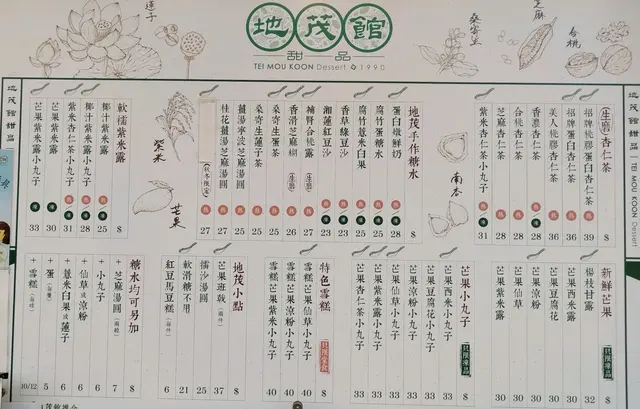 地茂館
甜品
TEI MOU KOON Dessert 1990
蓮子
桑寄生
芝麻
合桃
(生磨)杏仁茶 $
招牌桃膠杏仁茶 熱 39
招牌蛋白杏仁茶 熱 36
美人桃膠杏仁茶 熱 38
香濃杏仁茶 熱/凍 28
合桃杏仁茶 熱 28
芝麻杏仁茶 熱 28
紫米杏仁茶小丸子 熱 31
南杏
地茂手作糖水 $
蛋白燉鮮奶 熱/凍 28
腐竹蛋糖水 熱/凍 25
腐竹薏米白果 熱/凍 25
香草綠豆沙 熱/凍 23
湘蓮紅豆沙 熱/凍 23
補腎合桃露(生磨) 熱 27
香滑芝麻糊(生磨) 熱 26
桑寄生蛋茶 熱 25
桑寄生蓮子茶 熱 25
薑湯寧波芝麻湯圓 熱 25
桂花薑湯芝麻湯圓 熱 27
(秋冬限定)
紫米
芒果
軟糯紫米露 $
椰汁紫米露 熱/凍 25
椰汁紫米露小丸子 熱/凍 28
紫米杏仁茶小丸子 熱/凍 31
芒果紫米露 凍 30
芒果紫米露小丸子 凍 33
新鮮芒果 只限凍品 $
楊枝甘露 32
芒果西米露 30
芒果豆腐花 30
芒果涼粉 30
芒果仙草 30
芒果紫米露 30
芒果小丸子 只限凍品 $
芒果西米小丸子 33
芒果豆腐花小丸子 33
芒果涼粉小丸子 33
芒果仙草小丸子 33
芒果紫米露小丸子 33
芒果杏仁茶小丸子 33
特色雪糕 只限堂食 $
雪糕芒果仙草小丸子 40
雪糕芒果涼粉小丸子 40
雪糕芒果紫米小丸子 40
地茂小點 $
芒果班戟(兩件) 37
擂沙湯圓 25
軟滑糖不甩 21
紅豆馬豆糕(每件) 6
糖水均可另加 $
+芝麻湯圓(兩粒) 7
+小丸子 6
+仙草或涼粉 6
+薏米白果或蓮子 6
+蛋(每隻) 5
+雪糕(每球) 10/12
地茂館甜品
TEI MOU KOON Dessert
地茂館甜品